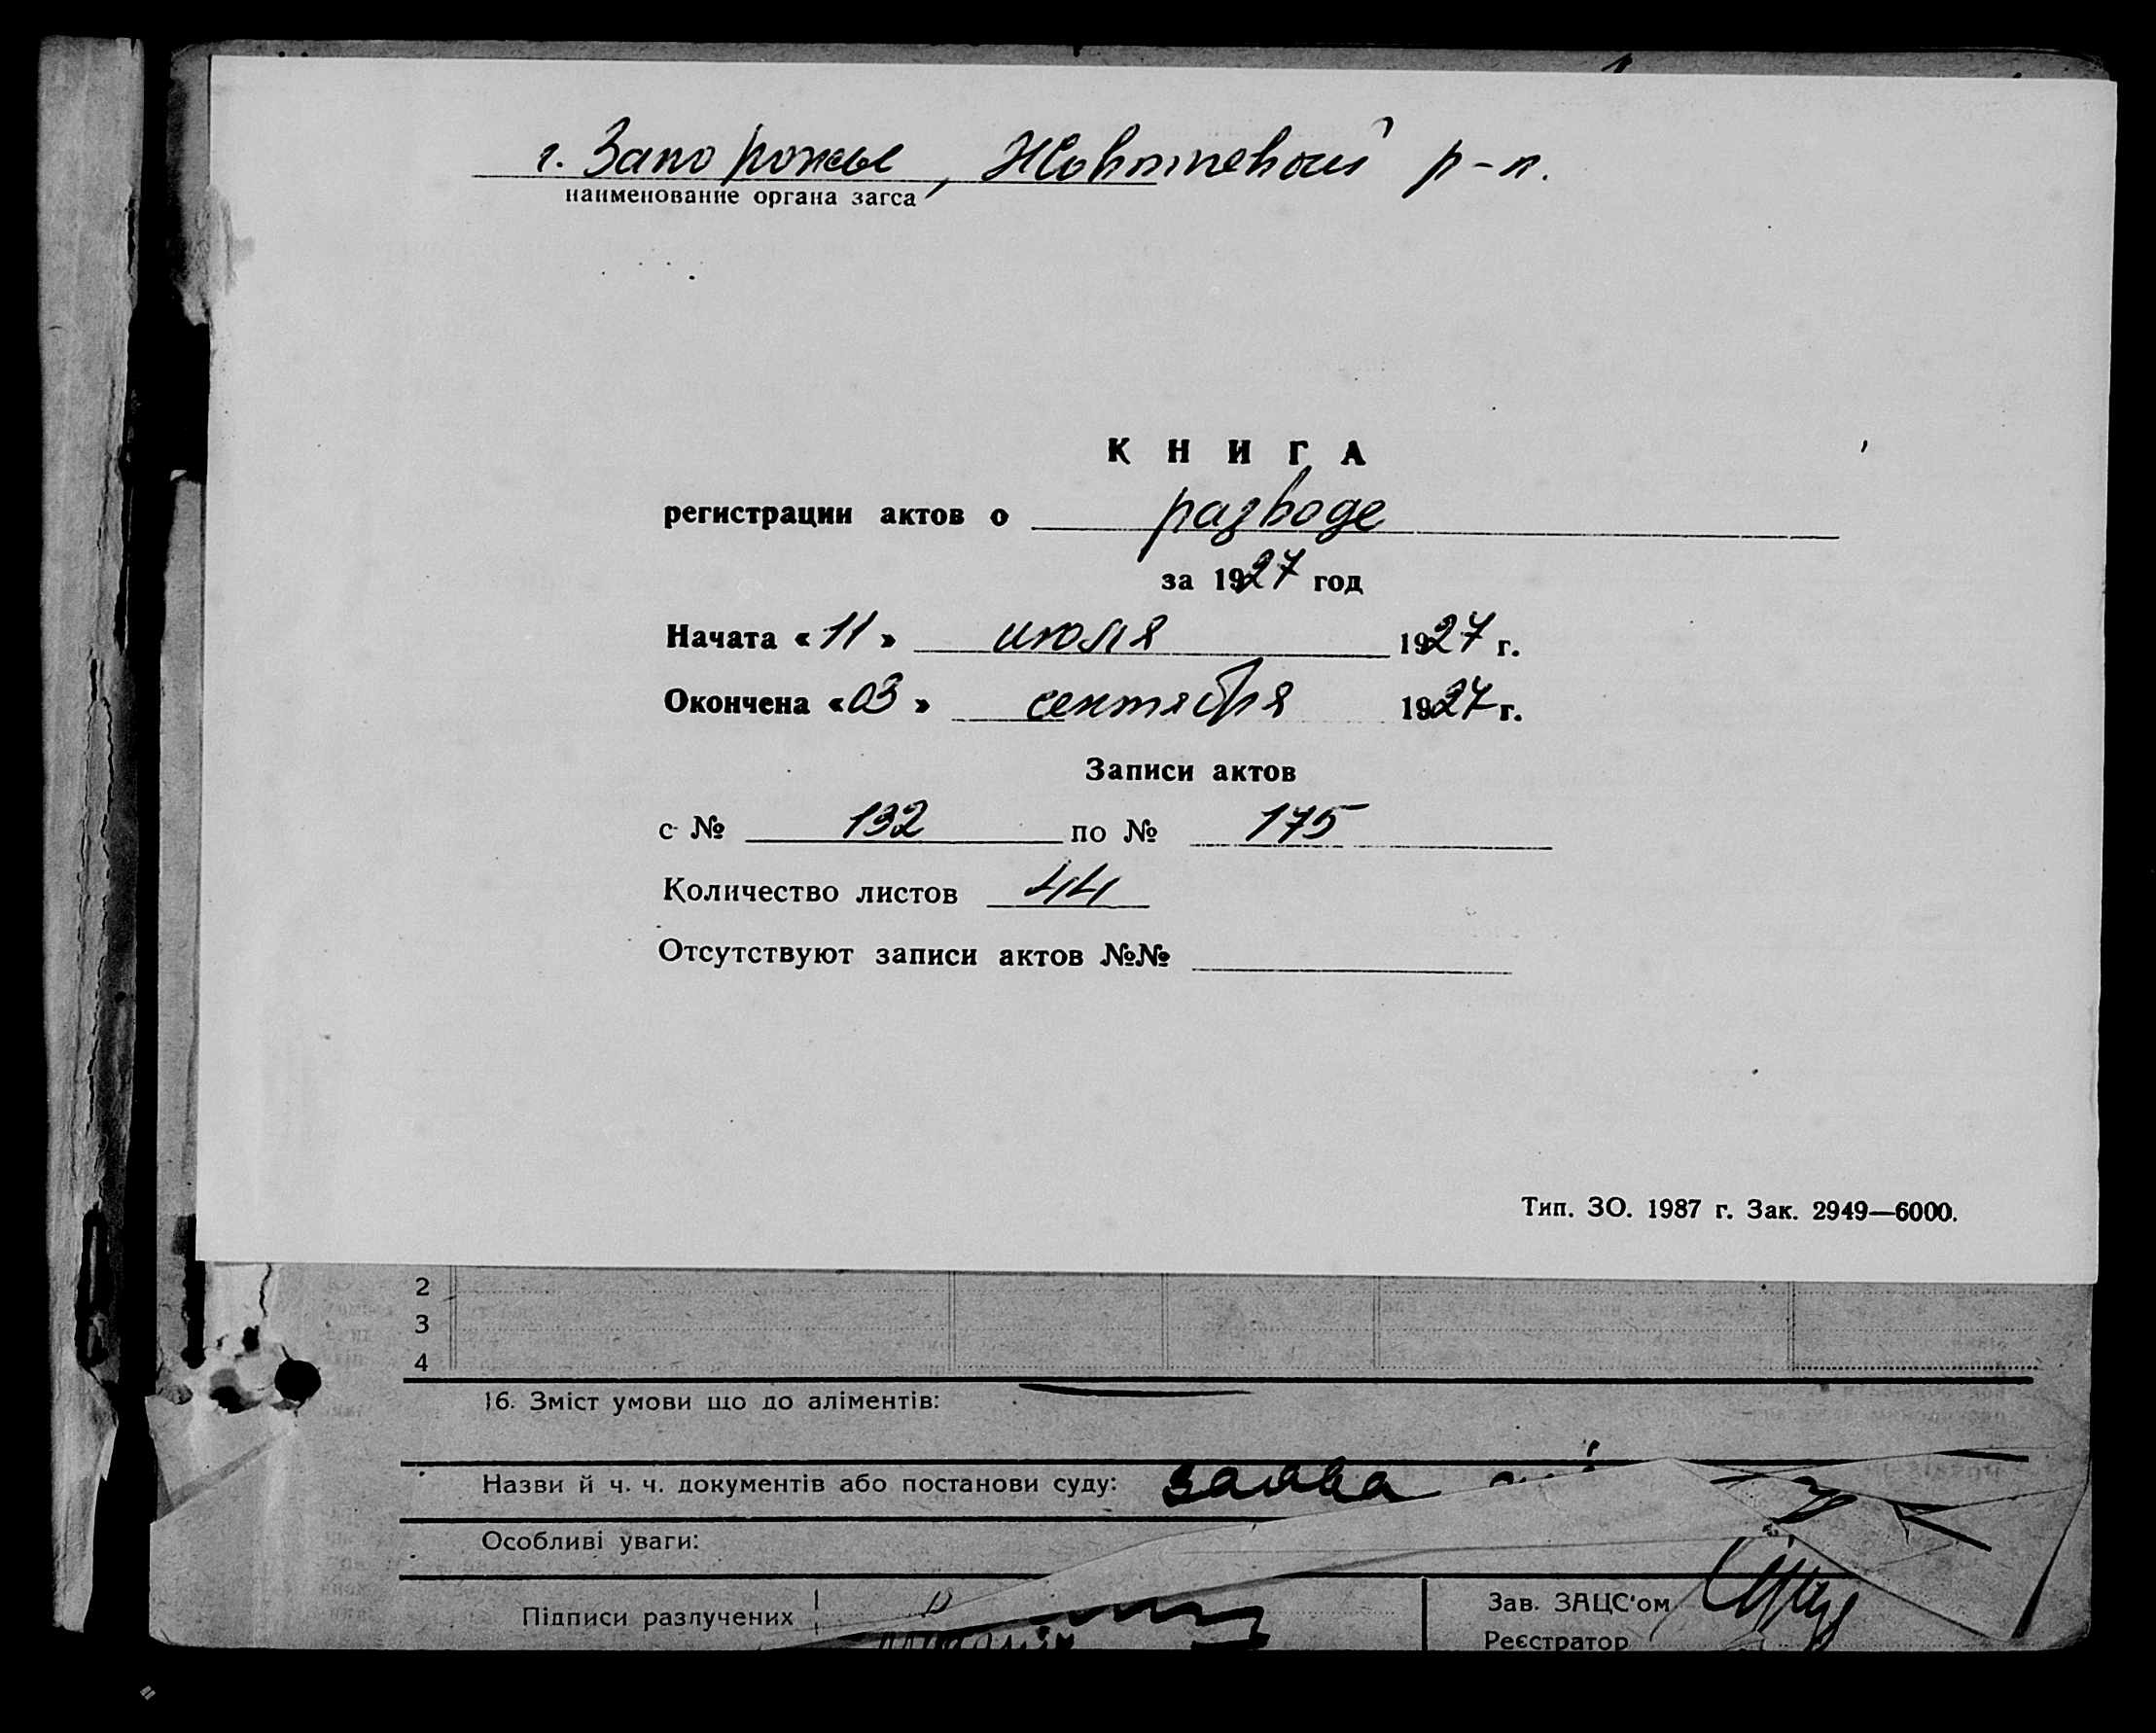 г. Запорожье, Жовтневый р-н.
наименование органа загса
КНИГА
регистрации актов о разводе
за 1927 год
Начата «11» июля 1927 г.
Окончена «03» сентября 1927 г.
Записи актов
с № 132 по № 175
Количество листов 44
Отсутствуют записи актов №№
Тип. ЗО. 1987 г. Зак. 2949—6000.
2
3
4
16. Зміст умови що до аліментів:
Назви й ч. ч. документів або постанови суду: заява
Особливі уваги:
Підписи разлучених
Зав. ЗАЦС'ом
Реєстратор